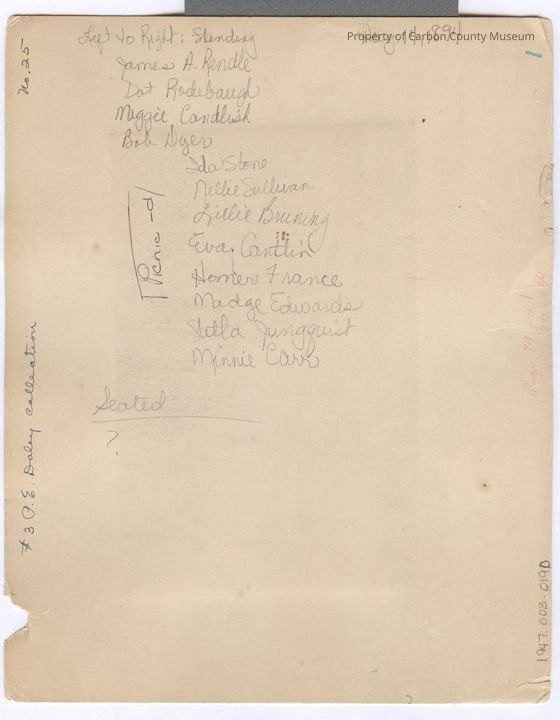 No. 25
Left to Right: Standing
Property of Carbon County Museum
James A. Rendle
Dot Rodebaugh
Maggie Candlish
Bob Dyer
Ida Stone
Nellie Sullivan
Lillie Bruning
Eva Cantlin
Homer France
Madge Edwards
Stella Jungquist
Minnie Carr
Picnic - d
Seated
?
# 3 P.E. Daley collection
Page
1947.003.019D